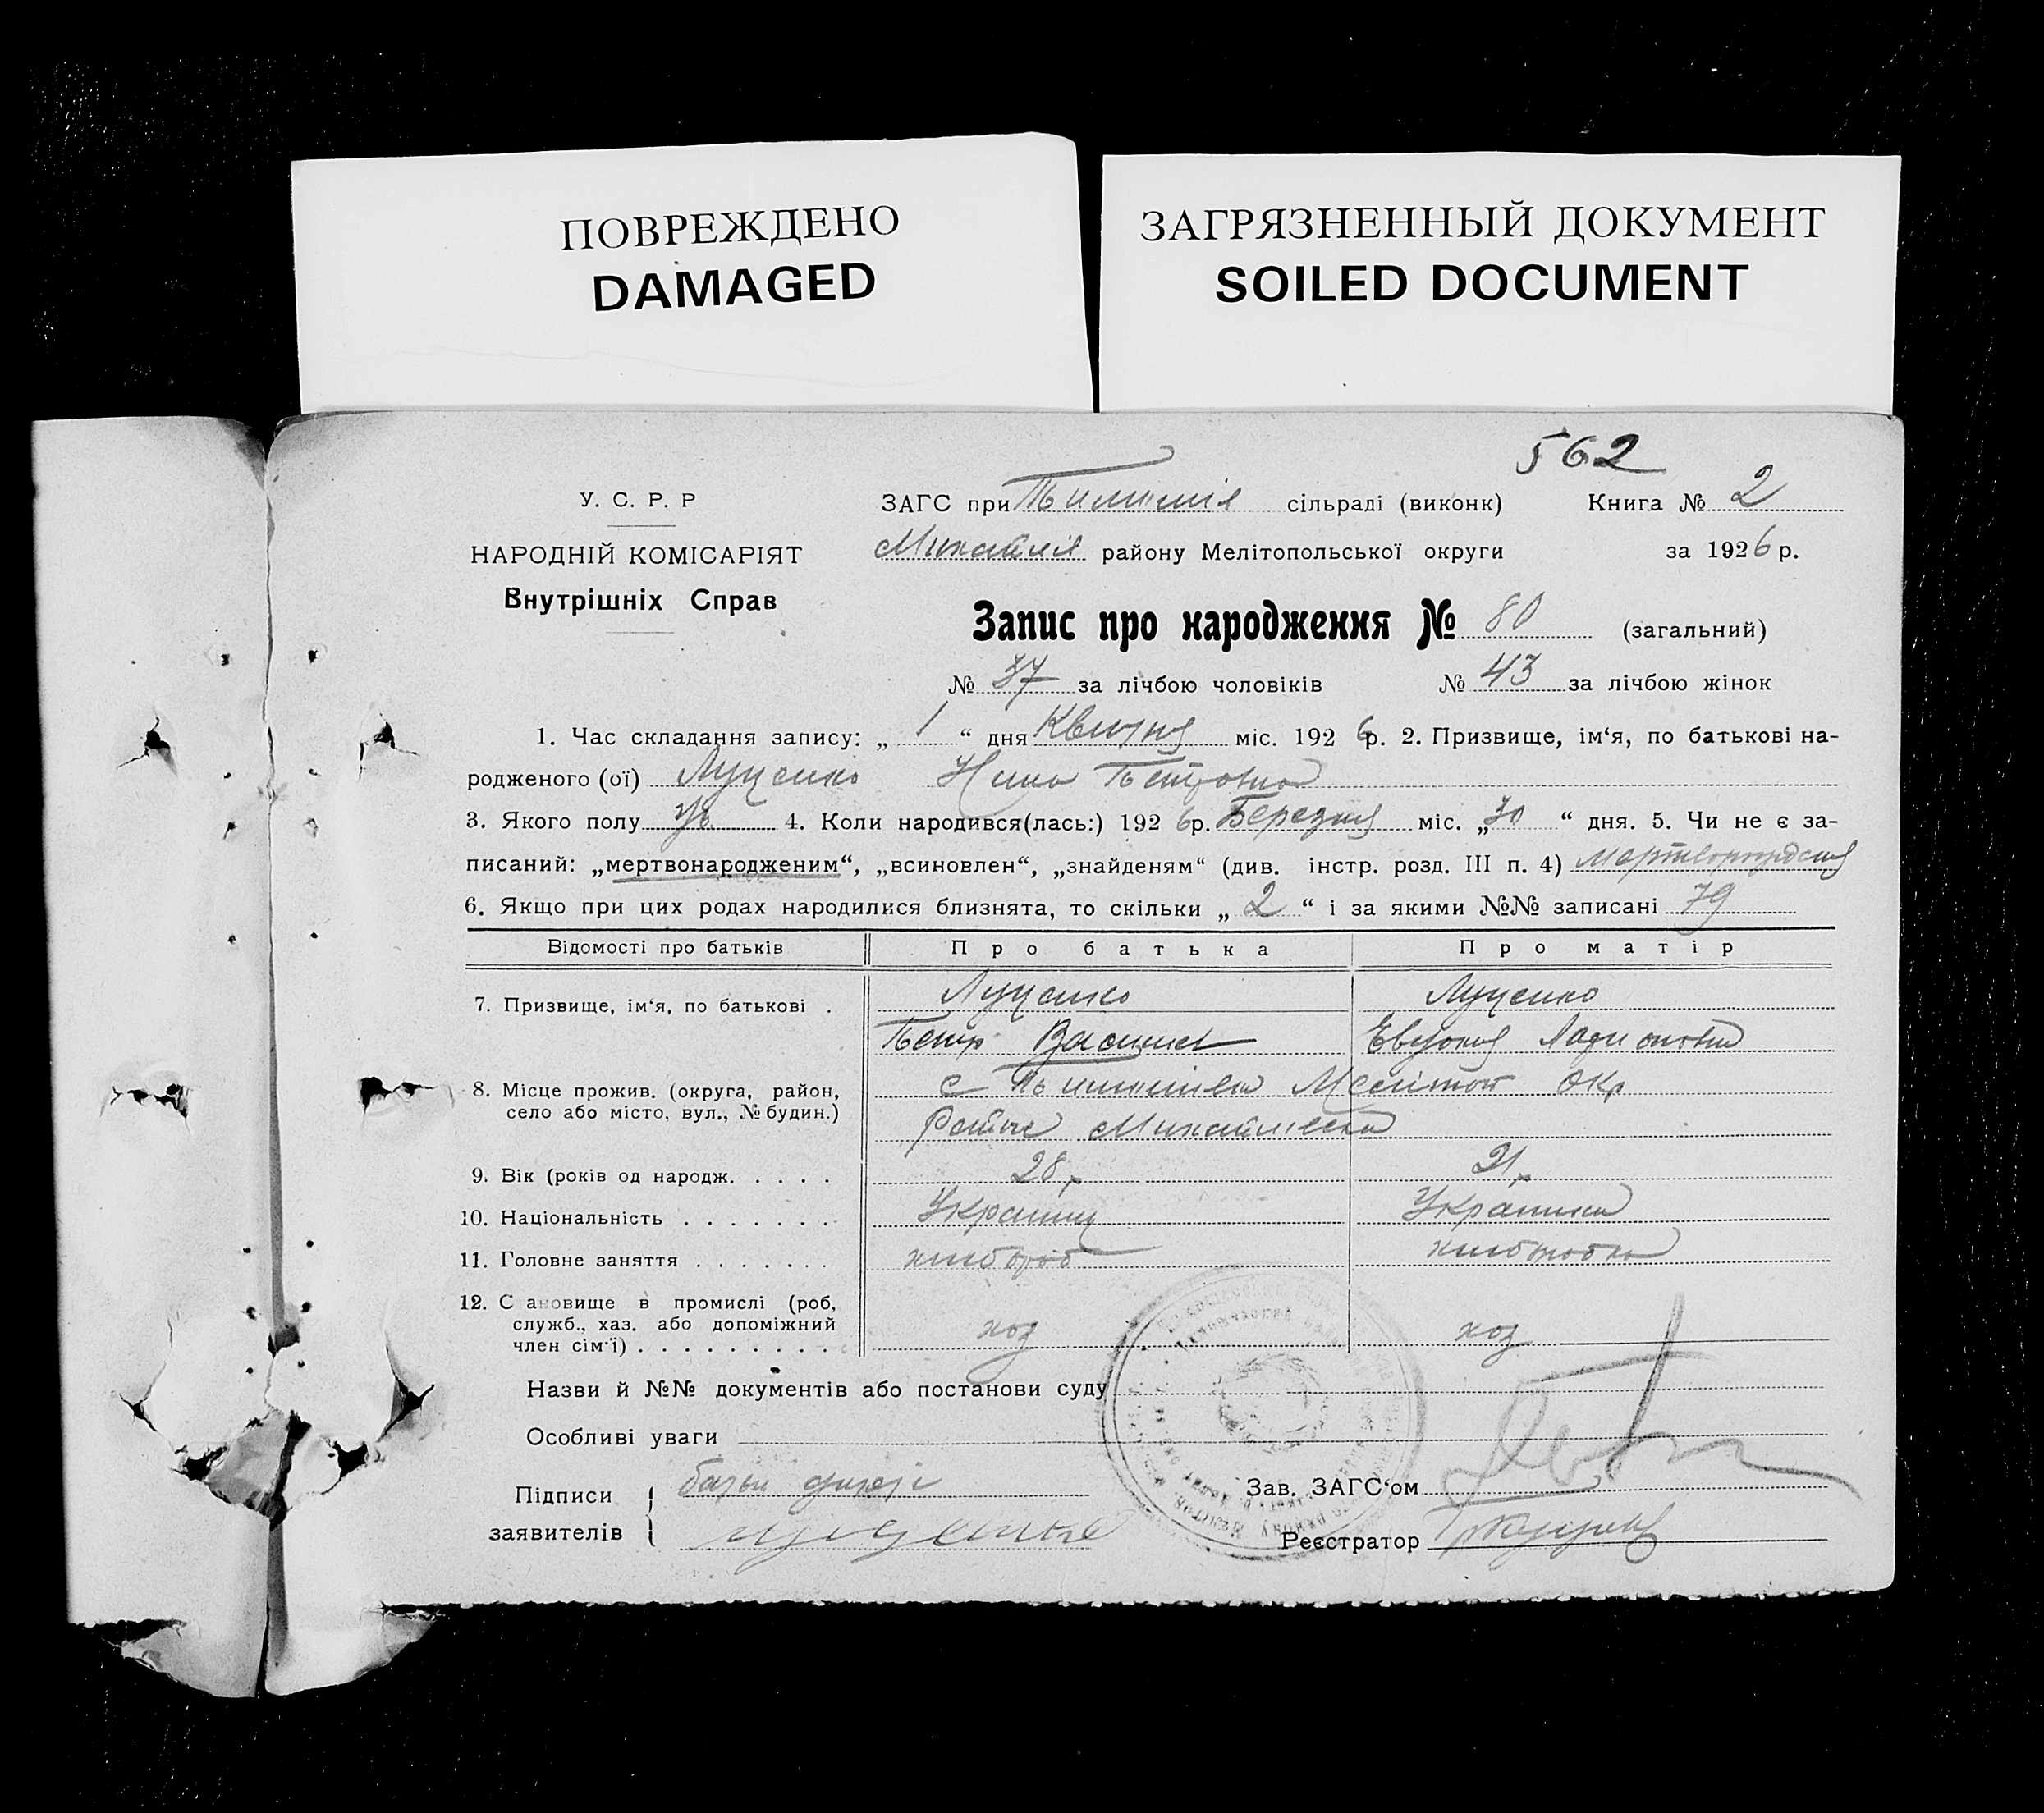 ПОВРЕЖДЕНО
DAMAGED
ЗАГРЯЗНЕННЫЙ ДОКУМЕНТ
SOILED DOCUMENT
562
У. С. Р. Р
НАРОДНІЙ КОМІСАРІЯТ
Внутрішніх Справ
ЗАГС при сільраді (виконк) Книга № 2
району Мелітопольської округи за 1926 р.
Запис про народження № 80 (загальний)
№ 37 за лічбою чоловіків № 43 за лічбою жінок
1. Час складання запису: „ 1 “ дня Квітня міс. 192 6 р. 2. Призвище, ім‘я, по батькові на-
родженого (ої) Луценко Нина Петровна
3. Якого полу 4. Коли народився(лась:) 192 6 р. Березня міс. „ 30 “ дня. 5. Чи не є за-
писаний: „мертвонародженим“, „всиновлен“, „знайденям“ (див. інстр. розд. III п. 4)
6. Якщо при цих родах народилися близнята, то скільки „ 2 “ і за якими №№ записані 79
Відомості про батьків Про батька Про матір
7. Призвище, ім‘я, по батькові . Луценко Луценко
Петр
8. Місце прожив. (округа, район, с Мелітоп окр
село або місто, вул., № будин.)
9. Вік (років од народж. . . . . 28 21
10. Національність . . . . . . . Українец Українка
11. Головне заняття . . . . . . . хлібороб
12. С ановище в промислі (роб,
служб., хаз. або допоміжний хоз хоз
член сім‘ї) . . . . . . . . . .
Назви й №№ документів або постанови суду
Особливі уваги
Підписи
заявителів
Зав. ЗАГС‘ом
Реєстратор